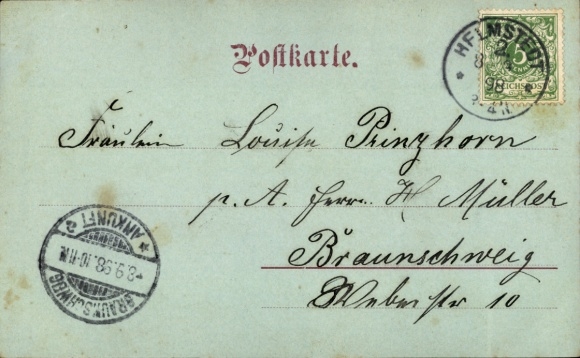 Postkarte.
HELMSTEDT
8
98
5
REICHSPOST
Fräulein Louise Prinzhorn
p. A. Herrn H Müller
Braunschweig
Weberstr 10
BRAUNSCHWEIG
8.9.98. 10-11N.
* ANKUNFT 2